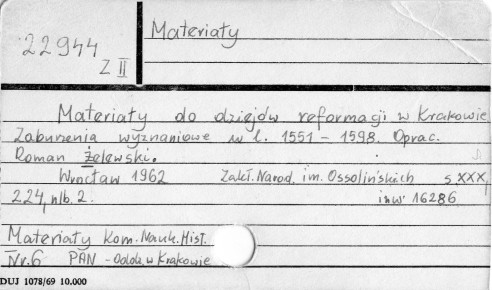 22944
Z II
Materiały
Materiały do dziejów reformacji w Krakowie
Zaburzenia wyznaniowe w l. 1551 - 1598. Oprac.
Roman Żelewski.
Wrocław 1962 Zakł. Narod. im. Ossolińskich s. XXX,
224, nlb. 2. inw 16286
Materiały Kom. Nauk. Hist.
Nr. 6 PAN - Oddz. w Krakowie
DUJ 1078/69 10.000